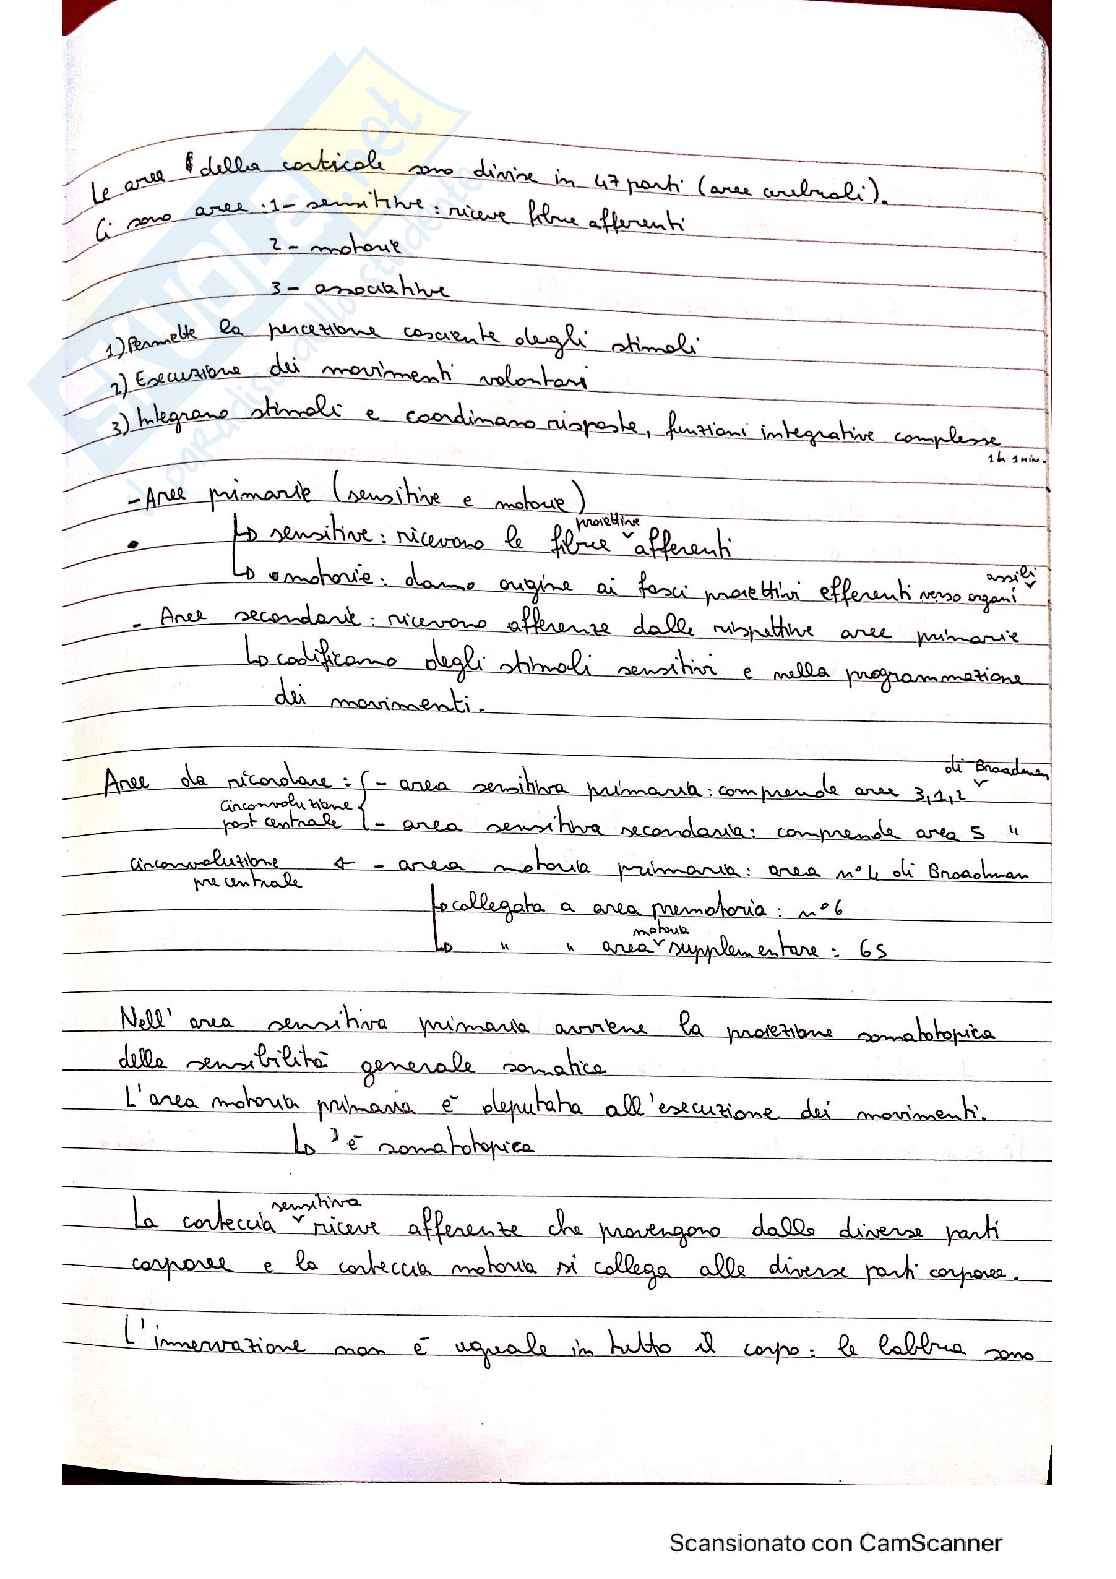 Le aree della corticale sono divise in 47 parti (aree cerebrali).
Ci sono aree: 1- sensitive: riceve fibre afferenti
2- motorie
3- associative
1) Permette la percezione cosciente degli stimoli
2) Esecuzione dei movimenti volontari
3) Integrano stimoli e coordinano risposte, funzioni integrative complesse
1h 1min.
- Aree primarie (sensitive e motorie)
↳ sensitive: ricevono le fibre proiettive afferenti
↳ motorie: danno origine ai fasci proiettivi efferenti verso organi
- Aree secondarie: ricevono afferenze dalle rispettive aree primarie
↳ codificano degli stimoli sensitivi e nella programmazione
dei movimenti.
Aree da ricordare: { - area sensitiva primaria: comprende aree 3,1,2 di Broadman
circonvoluzione post centrale { - area sensitiva secondaria: comprende area 5 "
circonvoluzione pre centrale ← - area motoria primaria: area n°4 di Broadman
↳ collegata a area premotoria: n°6
↳ " " area motoria supplementare: 6S
Nell'area sensitiva primaria avviene la proiezione somatotopica
della sensibilità generale somatica
L'area motoria primaria è deputata all'esecuzione dei movimenti.
↳ è somatotopica
La corteccia sensitiva riceve afferenze che provengono dalle diverse parti
corporee e la corteccia motoria si collega alle diverse parti corporee.
L'innervazione non è uguale in tutto il corpo: le labbra sono
Scansionato con CamScanner